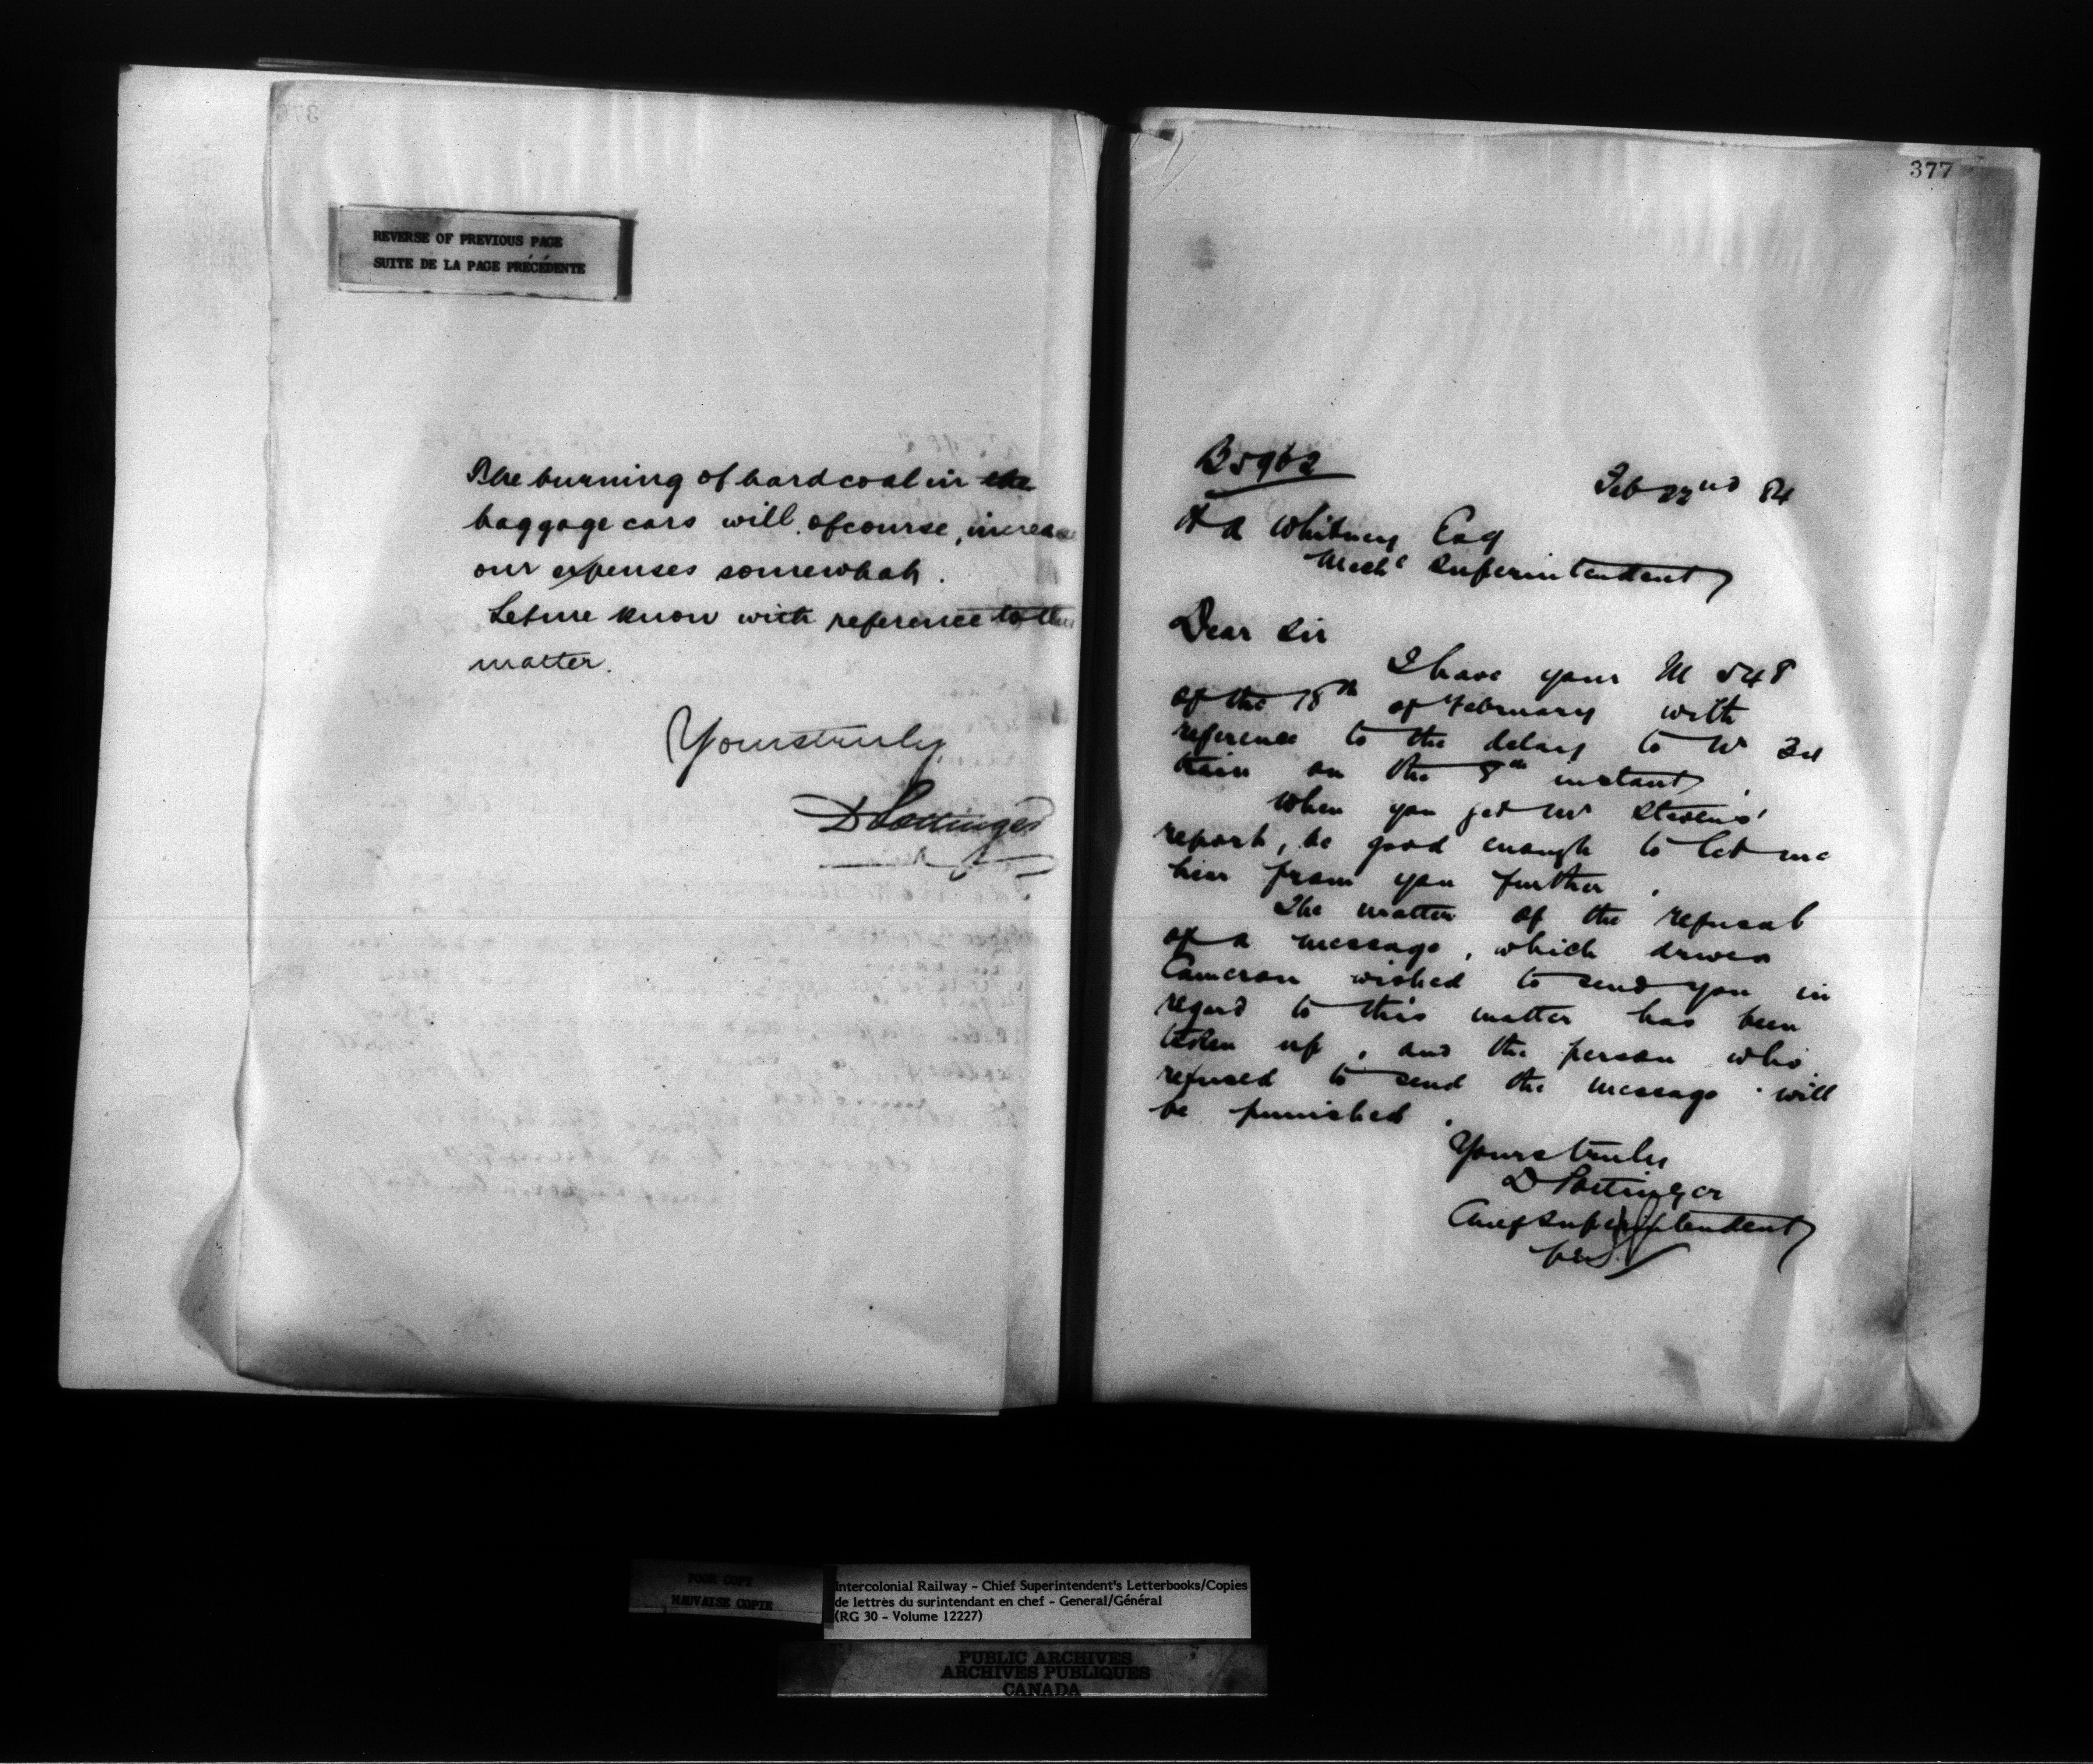 REVERSE OF PREVIOUS PAGE
SUITE DE LA PAGE PRÉCÉDENTE
The burning of hard coal in the
baggage cars will, of course, increase
our expenses somewhat.
Let me know with reference to this
matter.
Yours truly,
D Pottinger
377
B5962
Feb 22nd 84
H A Whitney Esq
Mechl Superintendent
Dear Sir
I have your M 548
of the 18th of February with
reference to the delay to No 34
train on the 8th instant.
When you get Mr Stevens'
report, be good enough to let me
hear from you further.
The matter of the refusal
of a message, which driver
Cameron wished to send you in
regard to this matter has been
taken up, and the person who
refused to send the message will
be punished.
Yours truly
D Pottinger
Chief Superintendent
POOR COPY
MAUVAISE COPIE
Intercolonial Railway - Chief Superintendent's Letterbooks/Copies
de lettres du surintendant en chef - General/Général
(RG 30 - Volume 12227)
PUBLIC ARCHIVES
ARCHIVES PUBLIQUES
CANADA